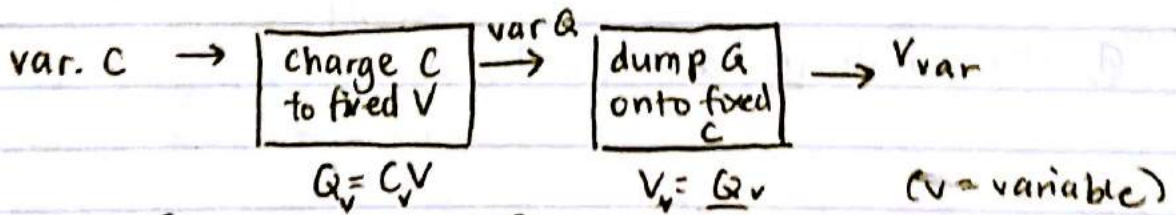 var. C → charge C to fixed V var Q → dump Q onto fixed C → Vvar
Qv = CvV
Vv = Qv
(v = variable)